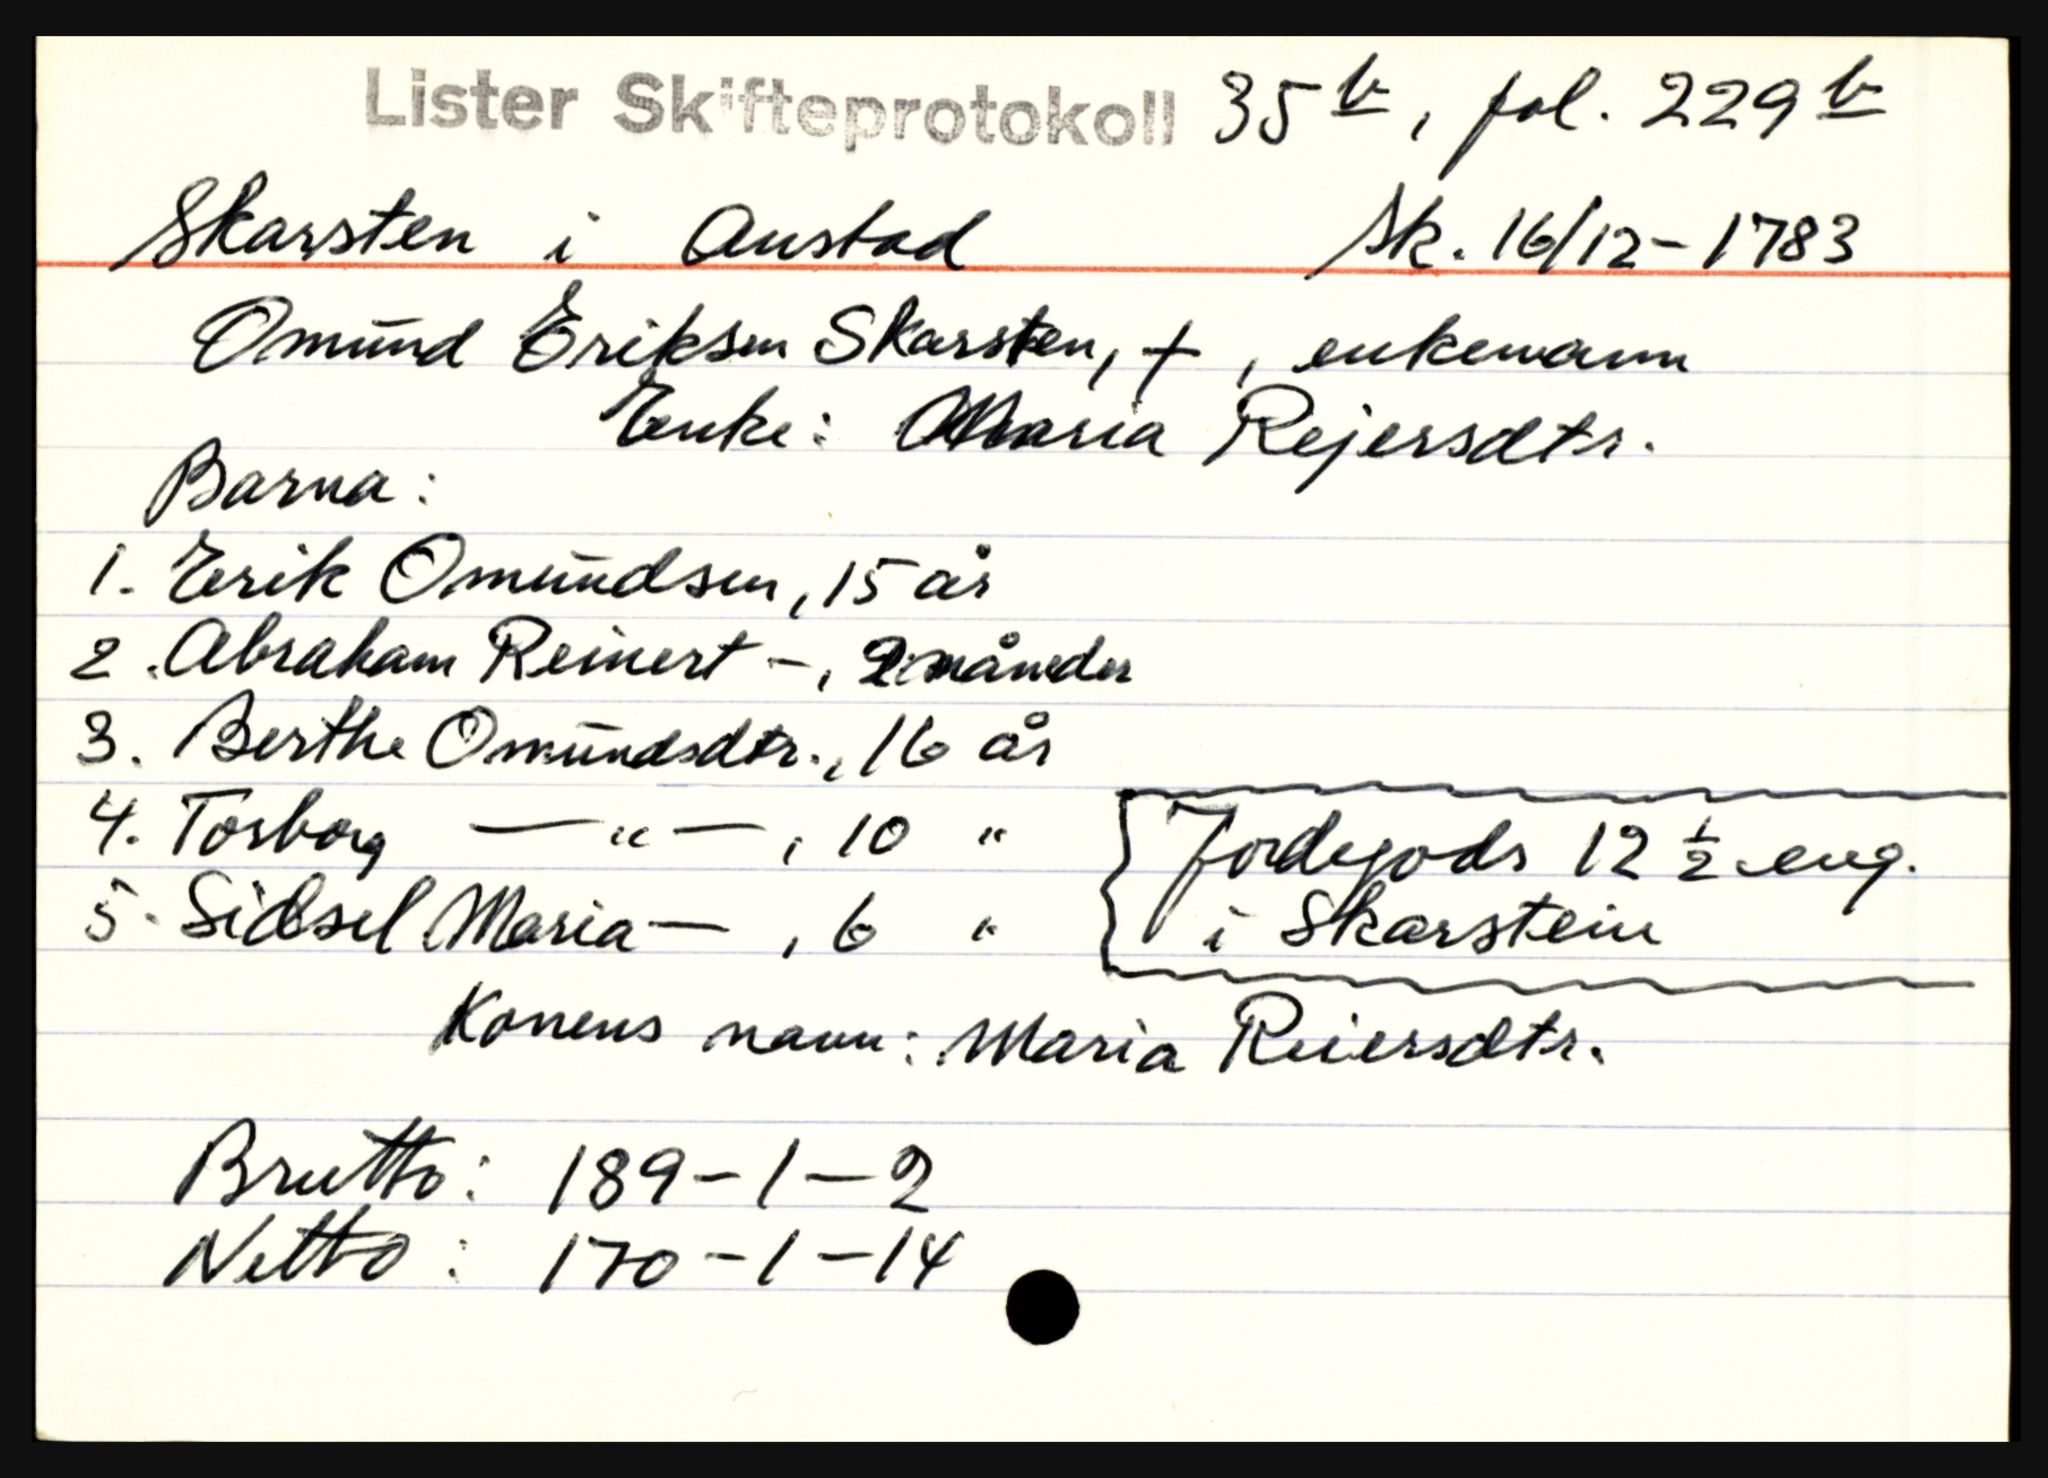 Lister Skifteprotokoll 35 b, fol. 229 b
Skarsten i Austad Sk. 16/12 - 1783
Omund Eriksen Skarsten, +, enkemann
Enke: Maria Rejersdtr.
Barna:
1. Erik Omundsen, 15 år
2. Abraham Reinert -, 2 måneder
3. Berthe Omundsdtr., 16 år
4. Torborg — " —, 10 "
5. Sidsel Maria —, 6 "
{ Jordegods 12 1/2 eng.
i Skarstein
Konens navn: Maria Reiersdtr.
Brutto: 189 - 1 - 2
Netto: 170 - 1 - 14